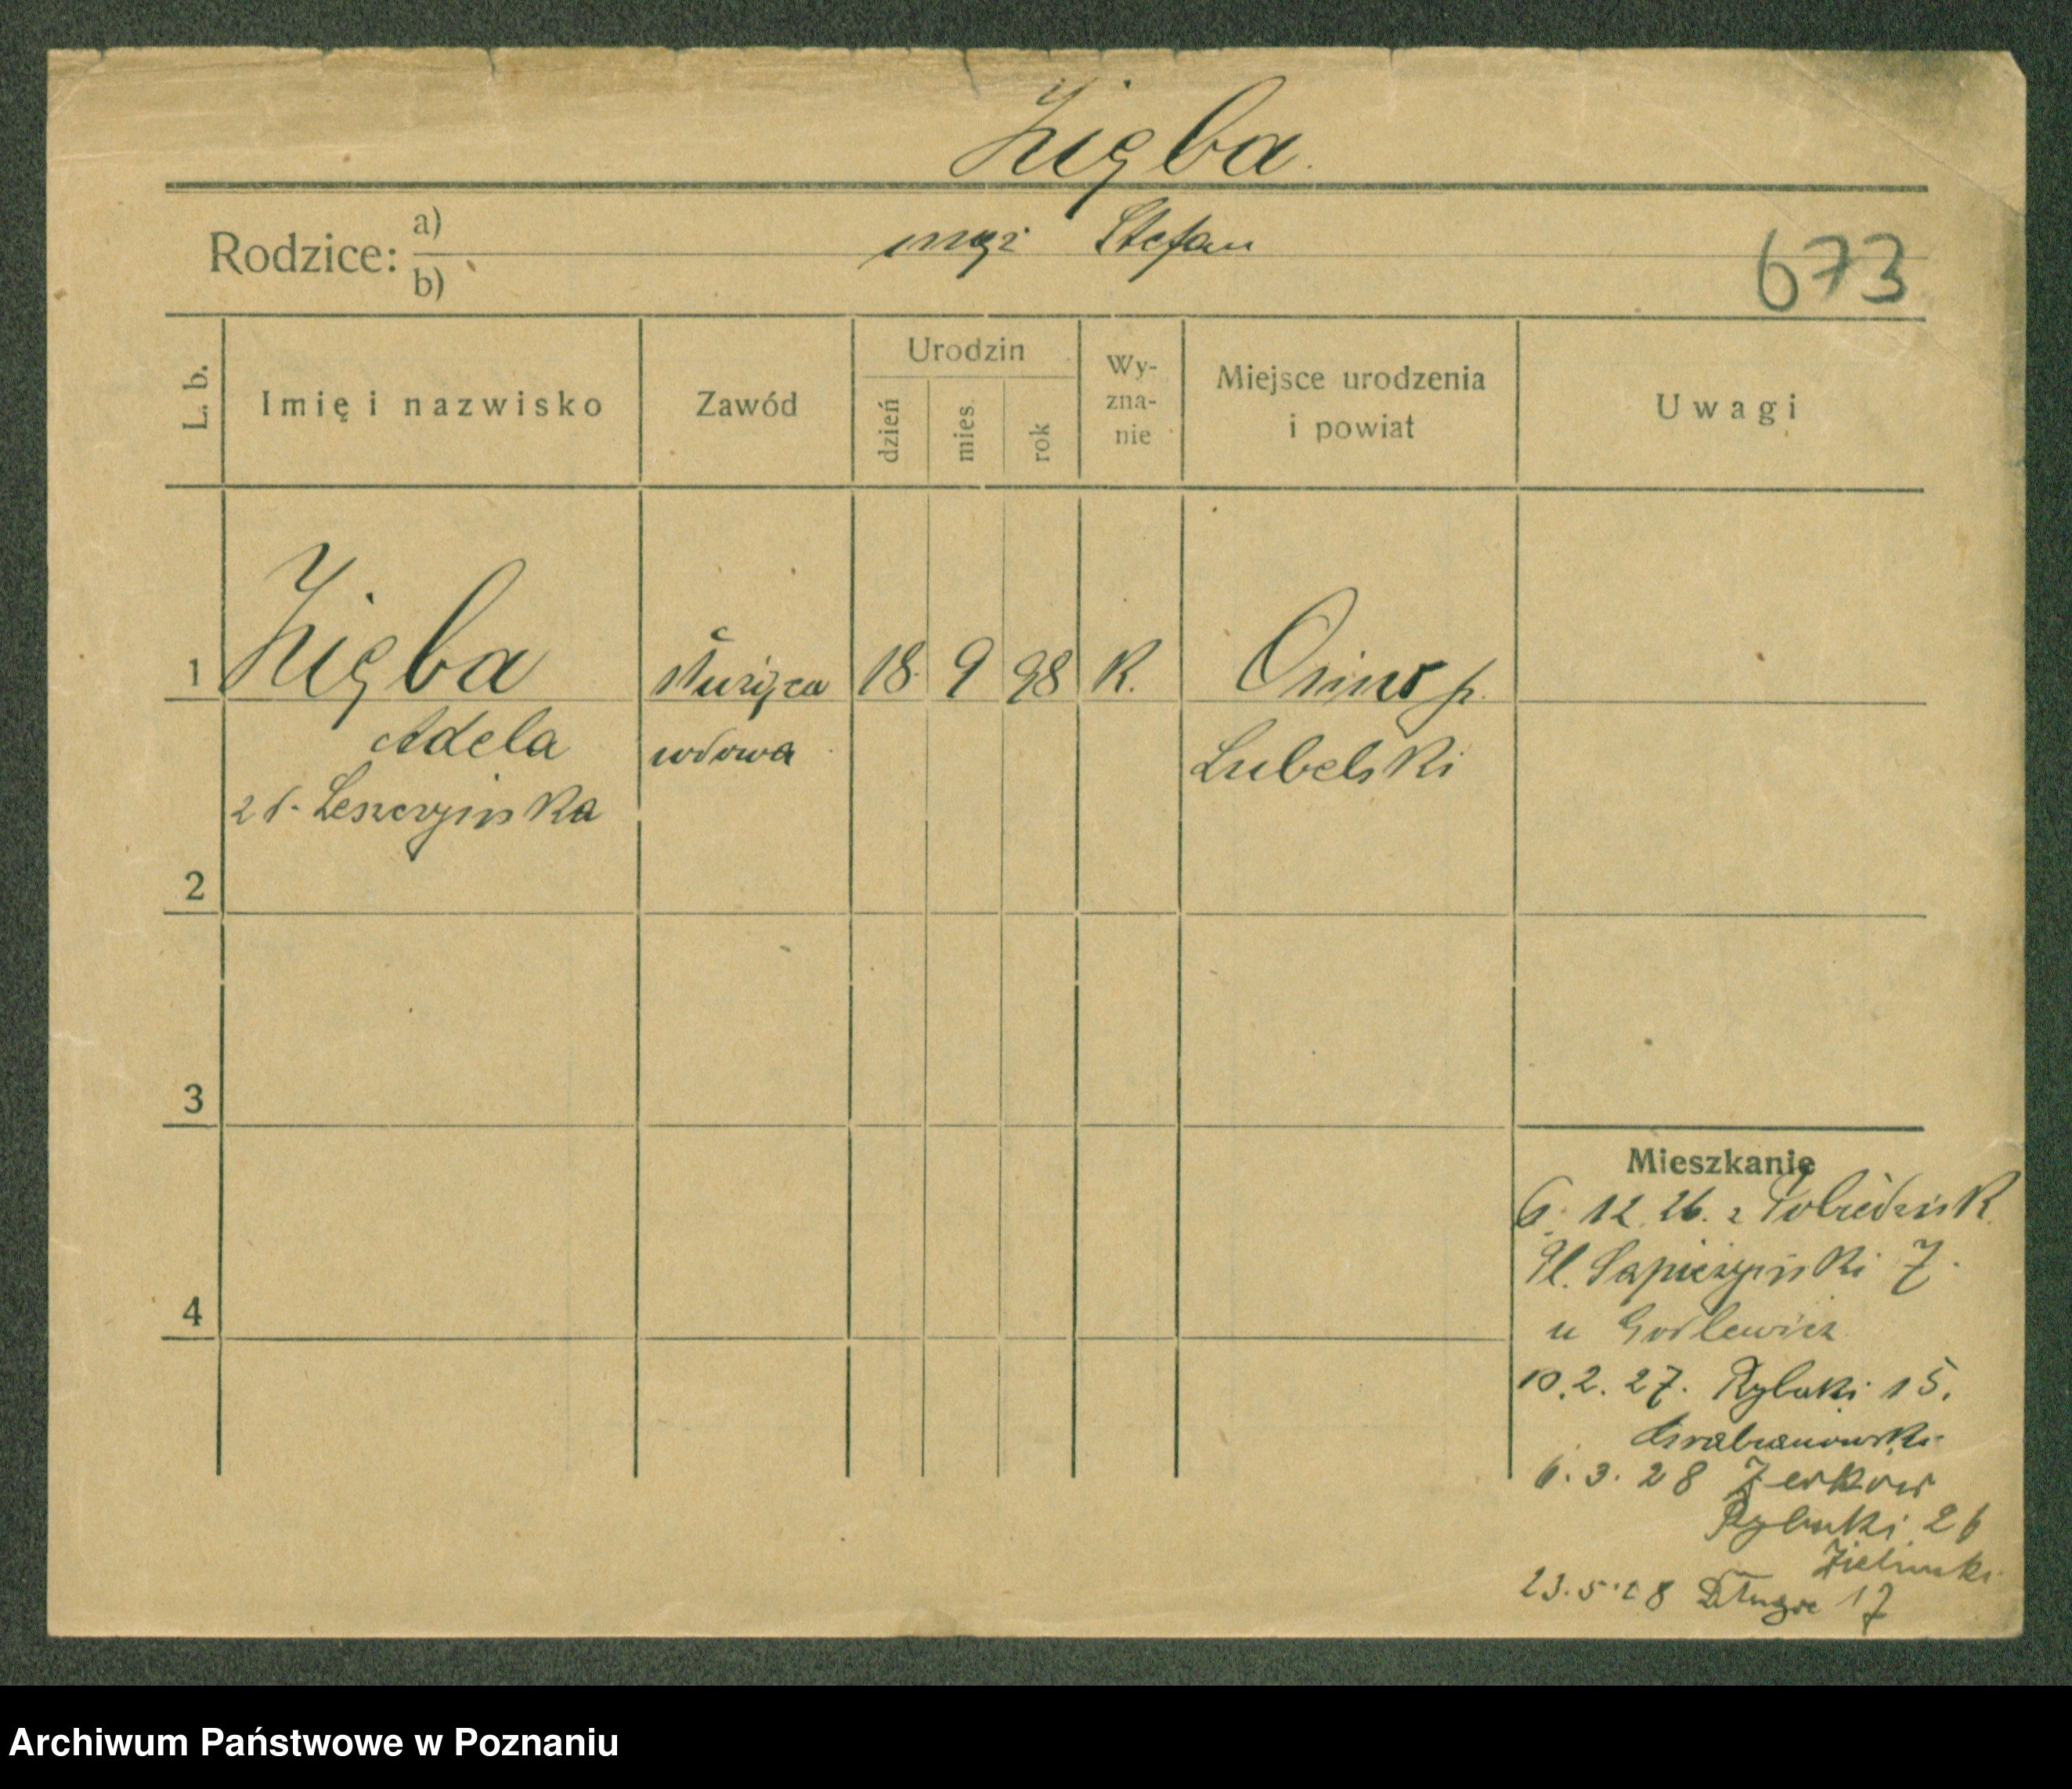 Zięba
Rodzice: a) b)
mąż Stefan
673
L. b.
Imię i nazwisko
Zawód
Urodzin
dzień
mies.
rok
Wy-
zna-
nie
Miejsce urodzenia
i powiat
Uwagi
1 Zięba służąca 18. 9 98 K. p.
Adela wdowa Lubelski
Leszczyńska
2
3
4
Mieszkanie
6. 12. 26. z Pobiedzisk
Pl. Sapieżyński 7.
u Godlewicz
10. 2. 27. Rybaki 15.
6. 3. 28 Żerków
Rybaki 26
Zielinski
23. 5. 28 Długa 17
Archiwum Państwowe w Poznaniu